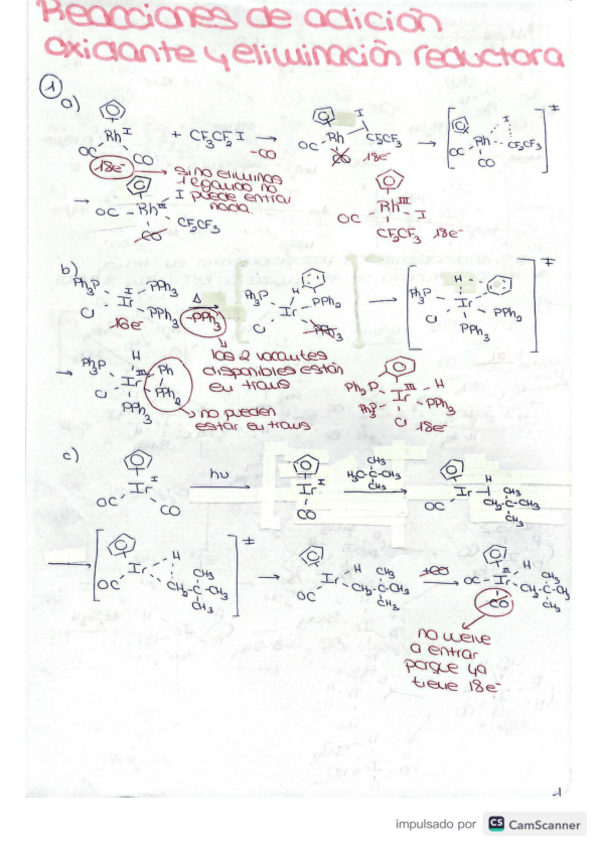 Reacciones de adición
oxidante y eliminación reductora
1
a)
Rh I
OC
CO
18e-
+ CF3CF2I →
-CO
I
OC - Rh
CF2CF3
CO
18e-
→
I
Rh
OC
CF2CF3
CO
‡
sino eliminas
1 ligando no
puede entrar
nada.
→ OC - Rh III
I
CF2CF3
CO
Rh III - I
OC
CF2CF3 18e-
b)
Ph3P
I
PPh3
Ir
Cl
PPh3
16e-
Δ
-PPh3
Ph3P
H
PPh2
Ir
Cl
PPh3
→
Ph3P
H
Ir
PPh2
Cl
PPh3
‡
los 2 vacantes
disponibles están
en trans
→ Ph3P
H
III
Ph
Ir
PPh2
Cl
PPh3
no pueden
estar en trans
Ph3P
III
H
Ir
Ph3P
PPh3
Cl
18e-
c)
Ir I
OC
CO
hν
Ir I
CO
CH3
H3C-C-CH3
CH3
H
Ir
OC
CH3
CH2-C-CH3
CH3
→
H
Ir
OC
CH3
CH2-C-CH3
CH3
‡
→
H
Ir
OC
CH3
CH2-C-CH3
CH3
+CO
III
H
OC - Ir
CH3
CH2-C-CH3
CH3
CO
no vuelve
a entrar
porque ya
tiene 18e-
1
impulsado por CS CamScanner